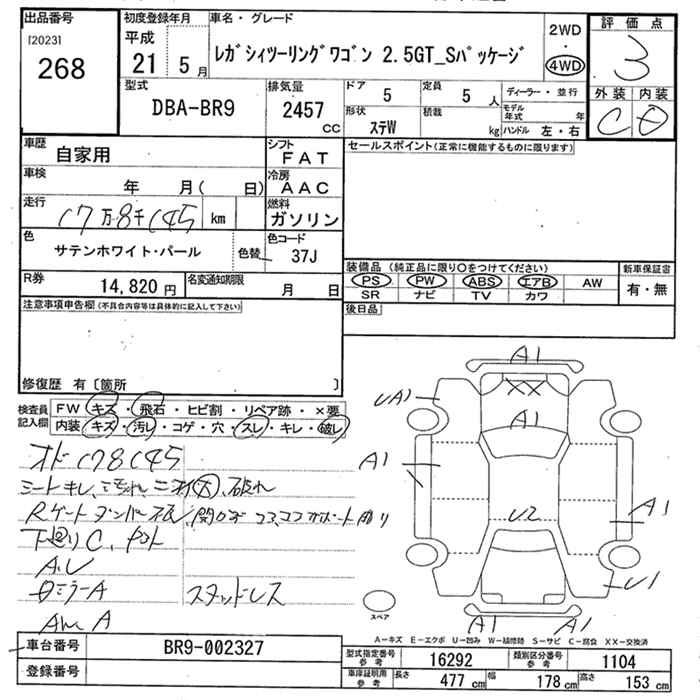 出品番号 初度登録年月 車名・グレード 評価点
[2023] 平成 2WD
268 21 5月 ﾚｶﾞｼｨﾂｰﾘﾝｸﾞﾜｺﾞﾝ 2.5GT_Sﾊﾟｯｹｰｼﾞ ・ 3
4WD
型式 排気量 ドア 5 定員 5人 ディーラー・並行 外装 内装
DBA-BR9 2457 CC 形状 ステW 積載 kg モデル年式 年 C D
ハンドル 左・右
車歴 自家用 シフト FAT セールスポイント(正常に機能するものに限ります)
車検 年 月( 日) 冷房 AAC
走行 km 燃料 ガソリン
色 サテンホワイト・パール 色替 色コード 37J
装備品 (純正品に限り○をつけてください) 新車保証書
R券 14,820円 名変通知期限 月 日 PS PW ABS エアB AW 有・無
SR ナビ TV カワ
注意事項申告欄(不具合内容等は具体的に記入して下さい) 後日品
修復歴 有〔箇所 〕
検査員 FW キズ・飛石・ヒビ割・リペア跡・×要
記入欄 内装 キズ・汚レ・コゲ・穴・スレ・キレ・破レ
A1
A1
UA1
A1
A1
U2
U1
A1 A1
XX
オド
シートキレ、
下廻りC、
スタッドレス
スペア
A-キズ E-エクボ U-凹み W-補修跡 S-サビ C-腐食 XX-交換済
車台番号 BR9-002327 型式指定番号 参考 16292 類別区分番号 参考 1104
登録番号 車庫証明用 参考 長さ 477cm 幅 178cm 高さ 153cm